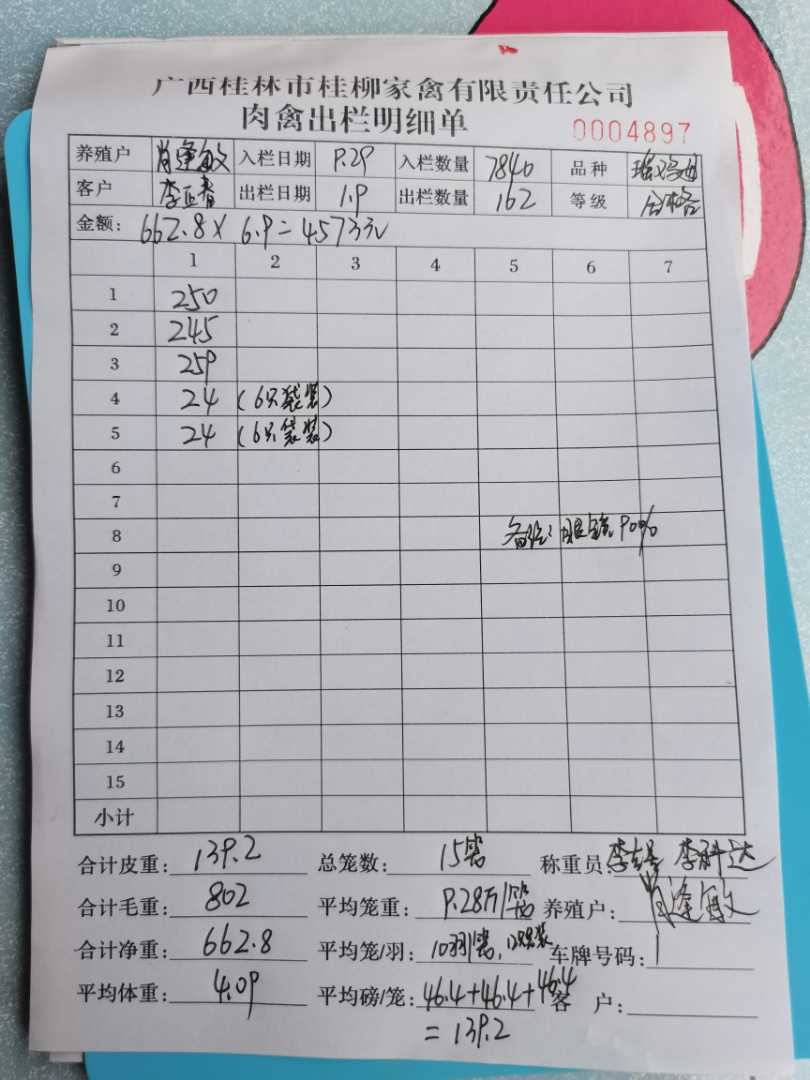 广西桂林市桂柳家禽有限责任公司
肉禽出栏明细单
0004897
养殖户 肖 敏 入栏日期 9.29 入栏数量 7840 品种
客户 李正春 出栏日期 1.9 出栏数量 162 等级 合格
金额: 662.8 × 6.9 = 4573元
1 2 3 4 5 6 7
1 250
2 245
3 259
4 24 (6只袋装)
5 24 (6只袋装)
6
7
8 备注: 90%
9
10
11
12
13
14
15
小计
合计皮重: 139.2 总笼数: 15笼 称重员: 李 李科达
合计毛重: 802 平均笼重: 9.28斤/笼 养殖户: 肖 敏
合计净重: 662.8 平均笼/羽: 10羽/笼, 车牌号码:
平均体重: 4.09 平均磅/笼: 46.4+46.4+46.4 客 户:
= 139.2